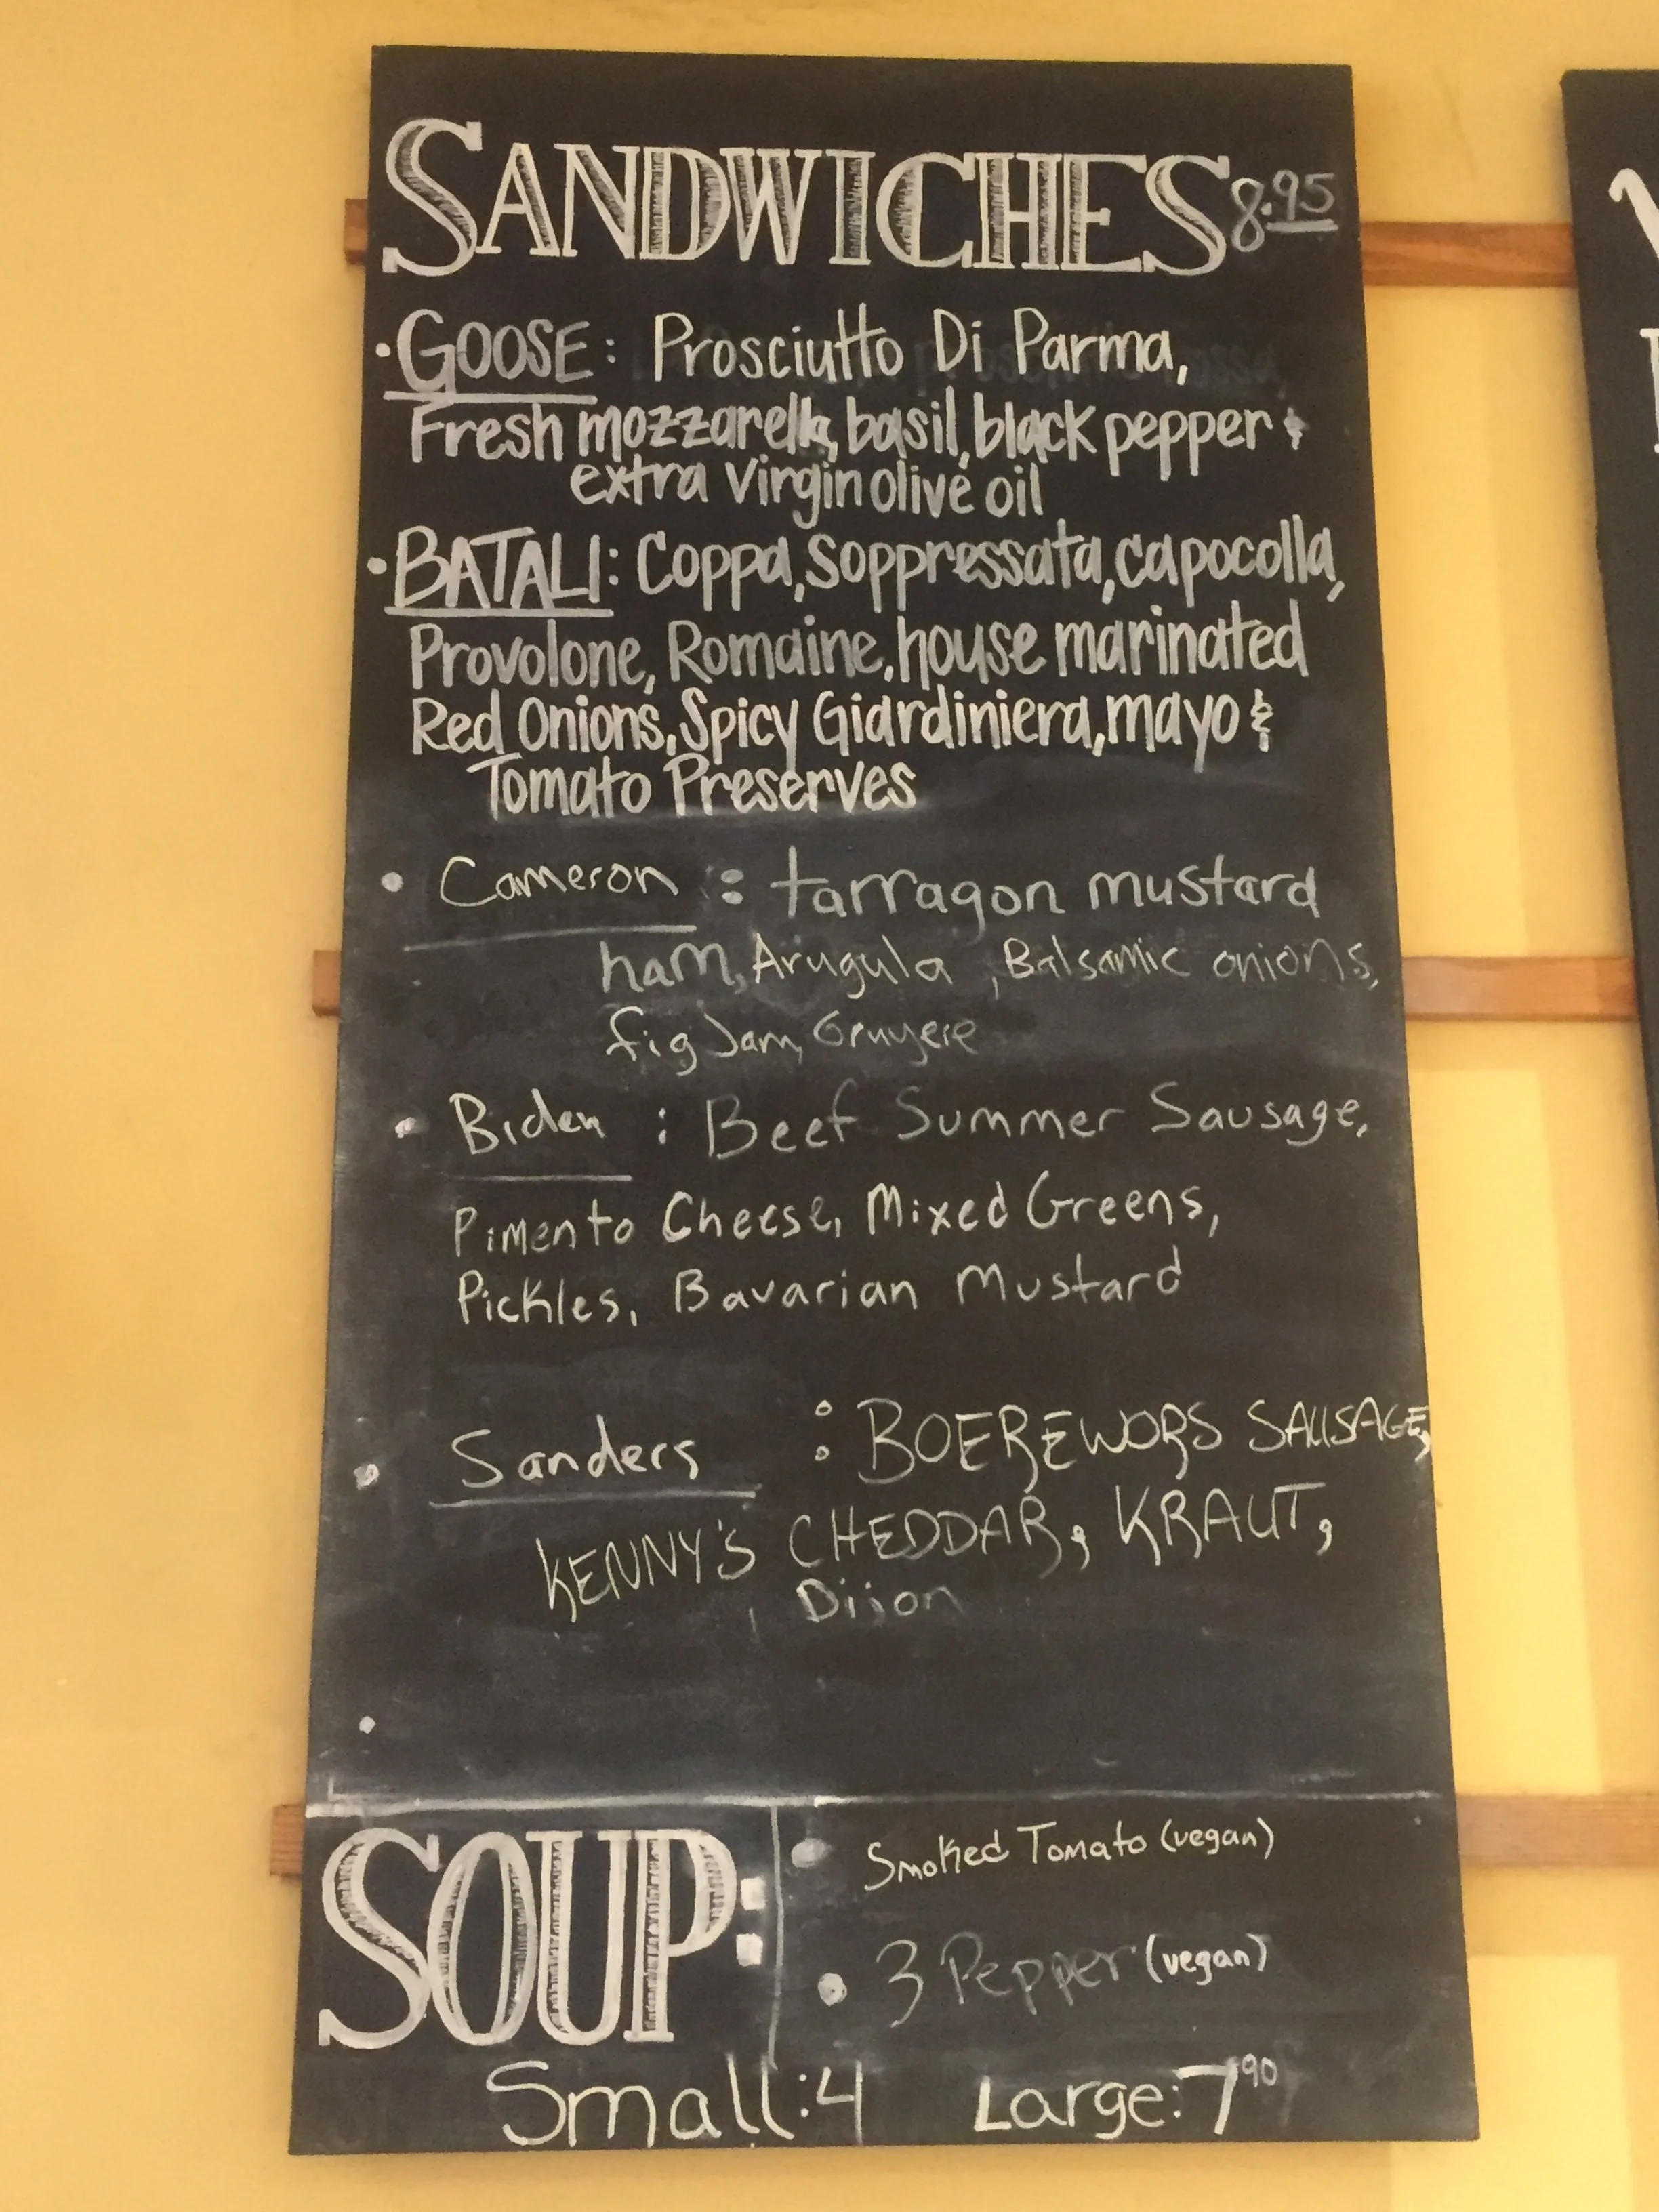 SANDWICHES 8.95
• GOOSE: Prosciutto Di Parma,
Fresh mozzarella, basil, black pepper &
extra Virgin olive oil
• BATALI: Coppa, Soppressata, capocolla,
Provolone, Romaine, house marinated
Red Onions, Spicy Giardiniera, mayo &
Tomato Preserves
• Cameron : tarragon mustard
ham, Arugula, Balsamic onions,
fig Jam, Gruyere
• Biden : Beef Summer Sausage,
Pimento Cheese, Mixed Greens,
Pickles, Bavarian Mustard
• Sanders : BOEREWORS SAUSAGE,
KENNY'S CHEDDAR, KRAUT,
Dijon
•
SOUP:
• Smoked Tomato (vegan)
• 3 Pepper (vegan)
Small: 4 Large: 7 90